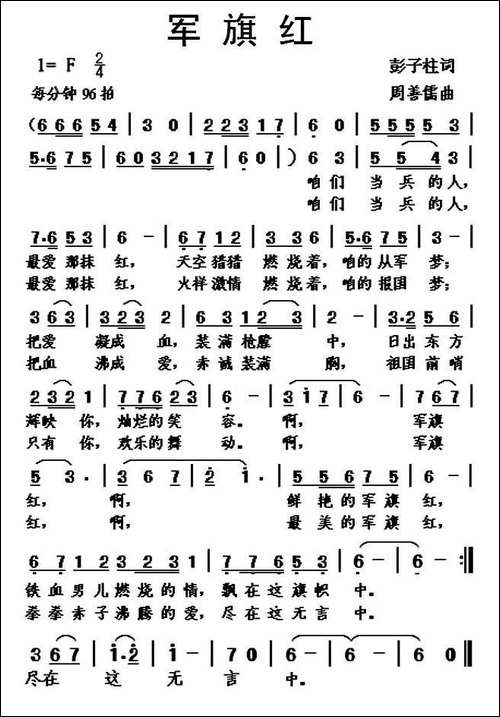 军旗红
1= F 2/4 彭子柱词
每分钟96拍 周善儒曲
(6 6 6 5 4 | 3 0 | 2 2 3 1 7 | 6 0 | 5 5 5 5 3 |
5·6 7 5 | 6 0 3 2 1 7 | 6 0 | ) 6 3 | 5 5 4 3 |
咱们 当 兵 的 人,
咱们 当 兵 的 人,
7·6 5 3 | 6 - | 6 7 1 2 | 3 3 6 | 5·6 7 5 | 3 - |
最爱 那抹 红, 天空 猎猎 燃 烧着, 咱的 从军 梦;
最爱 那抹 红, 火样 激情 燃 烧着, 咱的 报国 梦;
3 6 3 | 3 2 3 | 6 1 2 3 | 2 - | 3·2 5 6 |
把爱 凝成 血, 装满 枪膛 中, 日出 东方
把血 沸成 爱, 赤诚 装满 胸, 祖国 前哨
2 3 2 1 | 7 7 6 2 3 | 6 - | 3 1 7 | 6 - | 7 6 7 |
辉映 你, 灿烂的 笑 容。 啊, 军旗
只有 你, 欢乐的 舞 动。 啊, 军旗
5 3· | 3 6 7 | 2 1· | 5 5 6 7 5 | 6 - |
红, 啊, 鲜 艳的 军旗 红,
红, 啊, 最 美的 军旗 红,
6 7 1 2 3 | 3 2 3 | 7 7 6 5 3 | 6 - | 6 - :‖
铁血 男儿 燃烧 的 情, 飘在 这 旗帜 中。
拳拳 赤子 沸腾 的 爱, 尽在 这 无言 中。
3 6 7 | 1·2 | 1 - | 7 0 | 6 - | 6 - | 6 0 ‖
尽在 这 无 言 中。